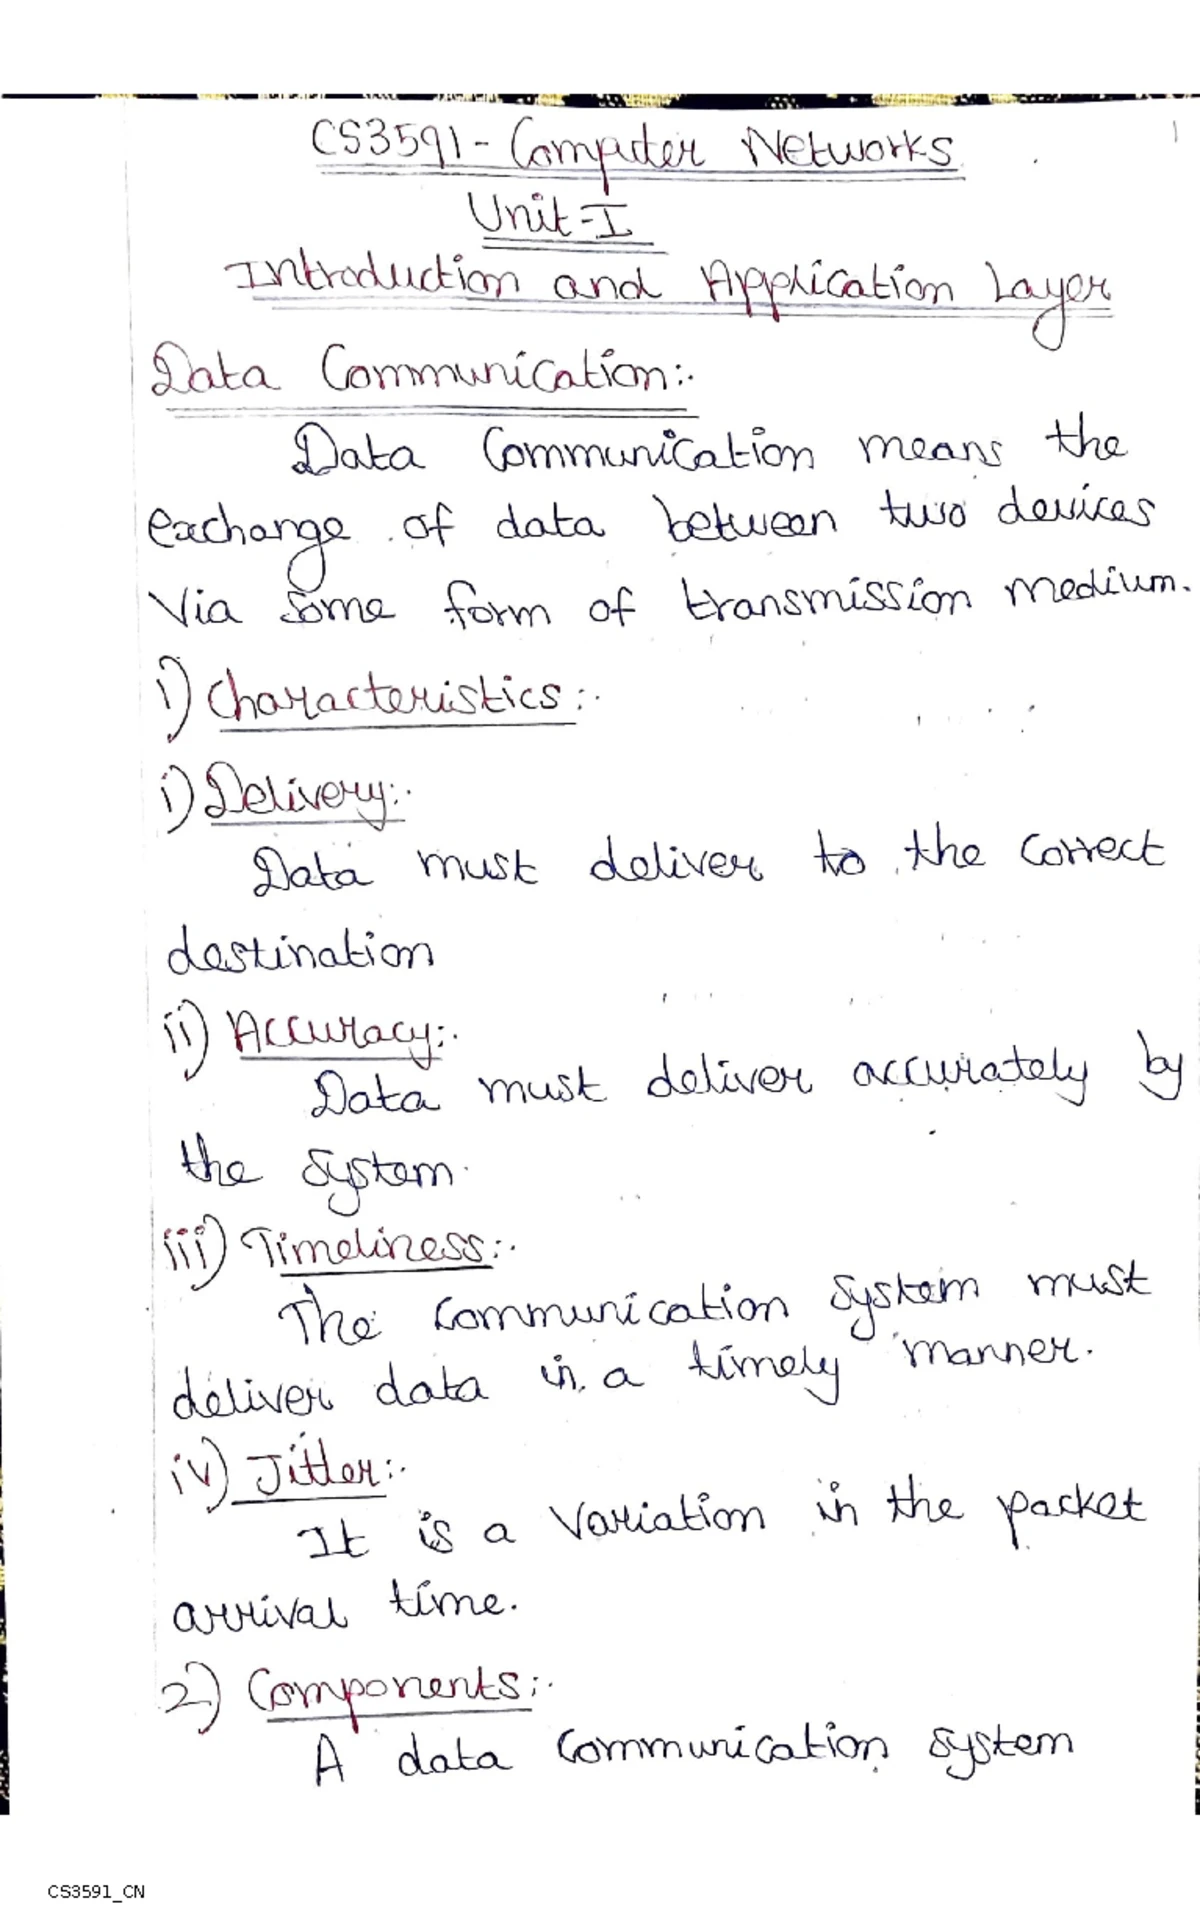 1
CS3591 - Computer Networks
Unit-I
Introduction and Application Layer
Data Communication:-
Data Communication means the
exchange of data between two devices
via some form of transmission medium.
i) Characteristics:-
i) Delivery:-
Data must deliver to the correct
destination
ii) Accuracy:-
Data must deliver accurately by
the system.
iii) Timeliness:-
The communication system must
deliver data in a timely manner.
iv) Jitter:-
It is a variation in the packet
arrival time.
2) Components:-
A data communication system
CS3591_CN